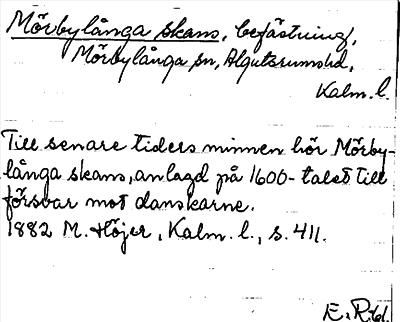 Mörbylånga skans, befästning,
Mörbylånga sn, Algutsrums hd,
Kalm. l.
Till senare tiders minnen hör Mörby-
långa skans, anlagd på 1600-talet till
försvar mot danskarne.
1882 M. Höjer, Kalm. l., s. 411.